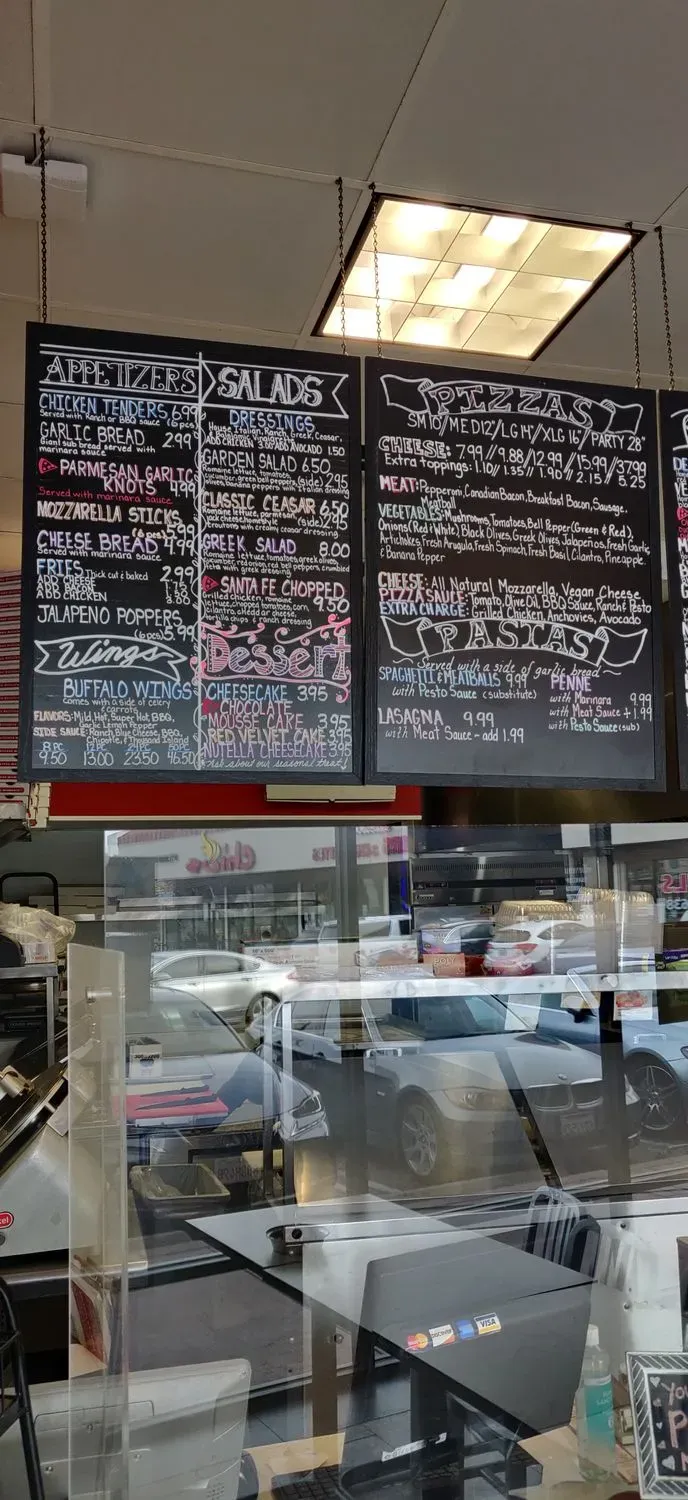 APPETIZERS
CHICKEN TENDERS 6.99
Served with Ranch or BBQ sauce (6 pcs)
GARLIC BREAD 2.99
Giant sub bread served with
marinara sauce
PARMESAN GARLIC
KNOTS 4.99
Served with marinara sauce
MOZZARELLA STICKS
(6 pcs) 5.99
CHEESE BREAD 4.99
Served with marinara sauce
FRIES Thick cut & baked 2.99
ADD CHEESE
ADD CHICKEN 3.00
JALAPENO POPPERS
(6 pcs) 5.99
Wings
BUFFALO WINGS
Comes with a side of celery
& carrots
FLAVORS: Mild, Hot, Super Hot, BBQ,
Garlic Lemon Pepper
SIDE SAUCE: Ranch, Blue Cheese, BBQ,
Chipotle, Thousand Island
8PC 12PC 24PC 50PC
9.50 13.00 23.50 46.50
SALADS
DRESSINGS
House Italian, Ranch, Greek, Ceasar,
ADD CHICKEN 3.00 ADD AVOCADO 1.50
GARDEN SALAD 6.50
Romaine lettuce, tomatoes,
cucumber, green bell peppers, (side) 2.95
olives, banana peppers with italian dressing
CLASSIC CEASAR 6.50
Romaine lettuce, parmesan,
jack cheese, homestyle (side) 2.95
croutons with creamy ceasar dressing
GREEK SALAD 8.00
Romaine lettuce, tomatoes, greek olives,
cucumber, red onion, red bell peppers, crumbled
feta with greek dressing
SANTA FE CHOPPED
Grilled chicken, romaine
lettuce, chopped tomatoes, corn, 9.50
cilantro, cheddar cheese,
tortilla chips & ranch dressing
Dessert
CHEESECAKE 3.95
CHOCOLATE
MOUSSE CAKE 3.95
RED VELVET CAKE 3.95
NUTELLA CHEESECAKE 3.95
Ask about our seasonal treat!
PIZZAS
SM 10"/MED 12"/LG 14"/XLG 16"/PARTY 28"
CHEESE: 7.99//9.88//12.99//15.99//37.99
Extra toppings: 1.10// 1.35// 1.90// 2.15// 5.25
MEAT: Pepperoni, Canadian Bacon, Breakfast Bacon, Sausage,
Meatball
VEGETABLES: Mushrooms, Tomatoes, Bell Pepper (Green & Red),
Onions (Red & White), Black Olives, Greek Olives, Jalapeños, Fresh Garlic,
Artichokes, Fresh Arugula, Fresh Spinach, Fresh Basil, Cilantro, Pineapple,
& Banana Pepper
CHEESE: All Natural Mozzarella, Vegan Cheese
PIZZA SAUCE: Tomato, Olive Oil, BBQ Sauce, Ranch & Pesto
EXTRA CHARGE: Grilled Chicken, Anchovies, Avocado
PASTAS
Served with a side of garlic bread
SPAGHETTI & MEATBALLS 9.99
with Pesto Sauce (substitute)
LASAGNA 9.99
with Meat Sauce - add 1.99
PENNE
with Marinara 9.99
with Meat Sauce + 1.99
with Pesto Sauce (sub)
POLY
DISCOVER
VISA